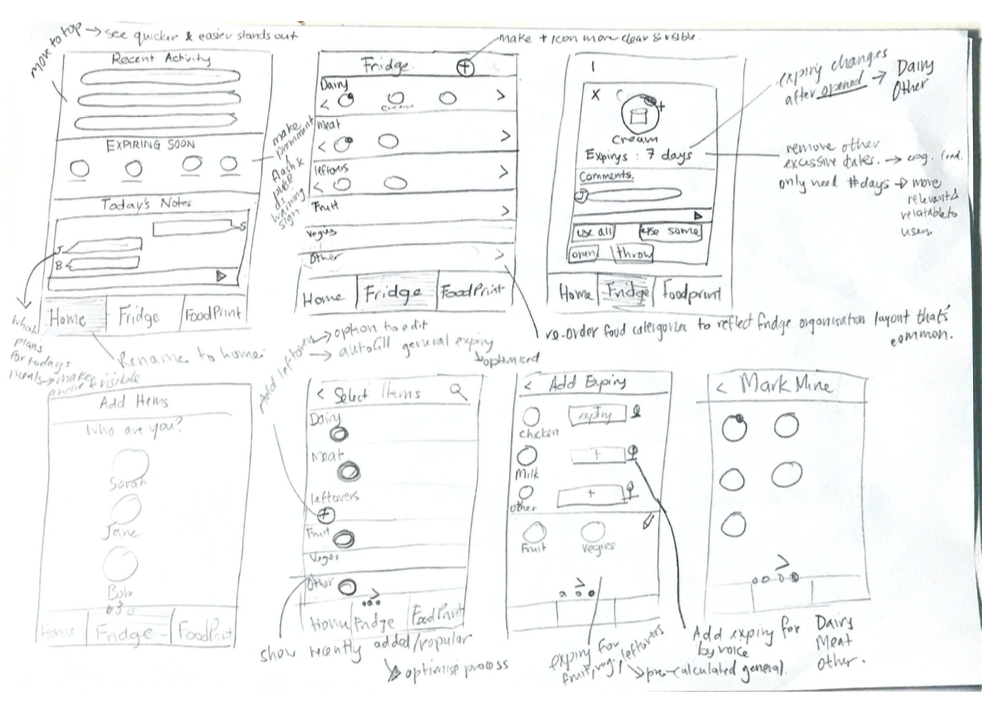 move to top → see quicker & easier stands out
Recent Activity
EXPIRING SOON
make prominent
flash & pulse
as warning
sign
Today's Notes
S
J
B
Home Fridge FoodPrint
what
plans
for todays
meals → make
visible
Rename to home.
make + icon more clear & visible.
Fridge +
Dairy
< cream >
meat
< >
leftovers
< >
Fruit >
Vegies
Other >
Home Fridge FoodPrint
re-order food categorize to reflect fridge organisation layout that's
common.
X
+
cream
Expirys : 7 days
Comments.
J
use all use some
open throw
Home Fridge Foodprint
expiry changes
after opened → Dairy
Other
remove other
excessive dates. → cog. load.
only need # days → more
relevant &
relatable to
users.
Add Items
Who are you?
Sarah
Jane
Bob
Home Fridge FoodPrint
Add leftovers → option to edit
→ autofill general expiry
→ optimised
< Select Items
Dairy
Meat
leftovers
+
Fruit
Vegies
Other
>
Home Fridge FoodPrint
show recently added/popular
→ optimise process
< Add Expiry
Chicken expiry
Milk +
Other +
Fruit Vegies
>
expiry for
fruit, veg, leftovers
→ pre-calculated general.
Add expiry for Dairy
by voice Meat
Other.
< Mark Mine
>